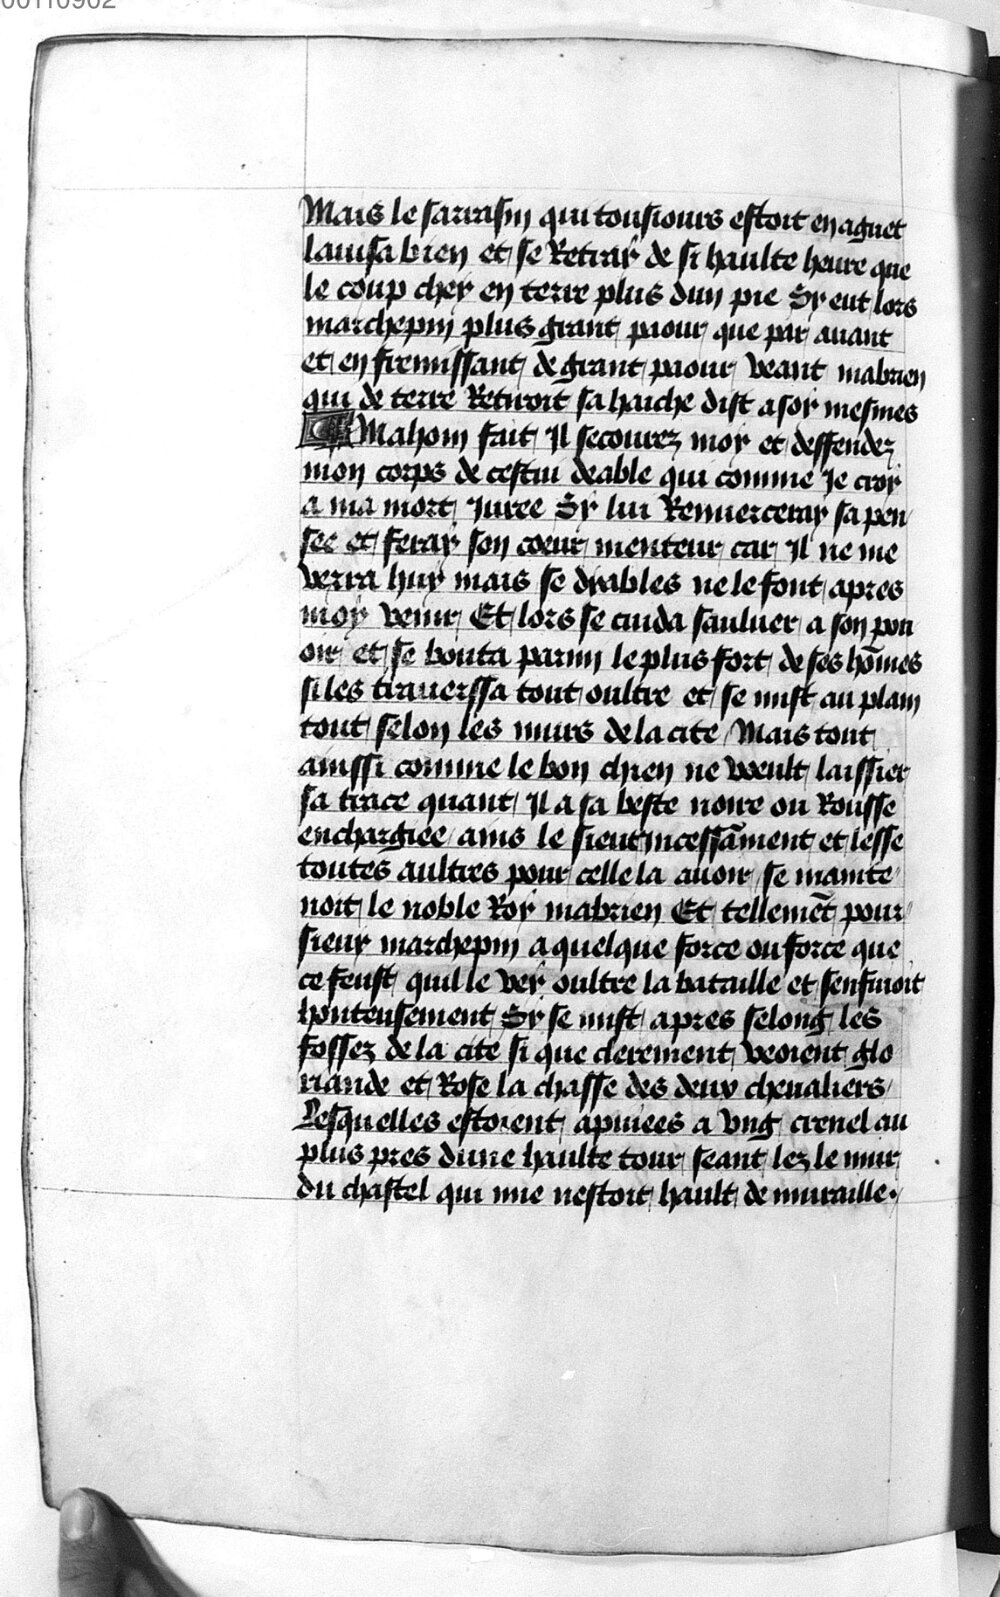 00110902
Mais le sarrasin qui tousiours estoit en aguet
lauisa bien et se Retray de si haulte heure que
le coup chey en terre plus dun pie Sy eut lors
marchepin plus grant paour que par auant
et en fremissant de grant paour veant mabrien
qui de terre Retiroit sa haiche dist a soy mesmes
Mahom fait Il secourez moy et deffendez
mon corps de cestui deable qui comme Je croy
a ma mort Juree Sy lui Renuerceray sa pen
see et feray son coeur menteur car Il ne me
verra huy mais se dyables ne le font apres
moy venir Et lors se cuida sauluer a son pou
oir et se bouta parmi le plus fort de ses hōmes
si les trauerssa tout oultre et se mist au plain
tout selon les murs de la cite Mais tout
ainssi comme le bon chien ne voeult laissier
sa trace quant Il a sa beste noire ou Rousse
enchargiee ains le sieut incessāment et lesse
toutes aultres pour celle la auoir se mainte
noit le noble Roy mabrien Et tellemēt pour
sieuy marchepin a quelque force ou force que
ce feust quil le vey oultre la bataille et senfuioit
honteusement Sy se mist apres selong les
fossez de la cite si que clerement veoient glo
riande et Rose la chasse des deux cheualiers
Lesquelles estoient apuiees a vng crenel au
plus pres dune haulte tour seant lez le mur
du chastel qui mie nestoit hault de muraille.